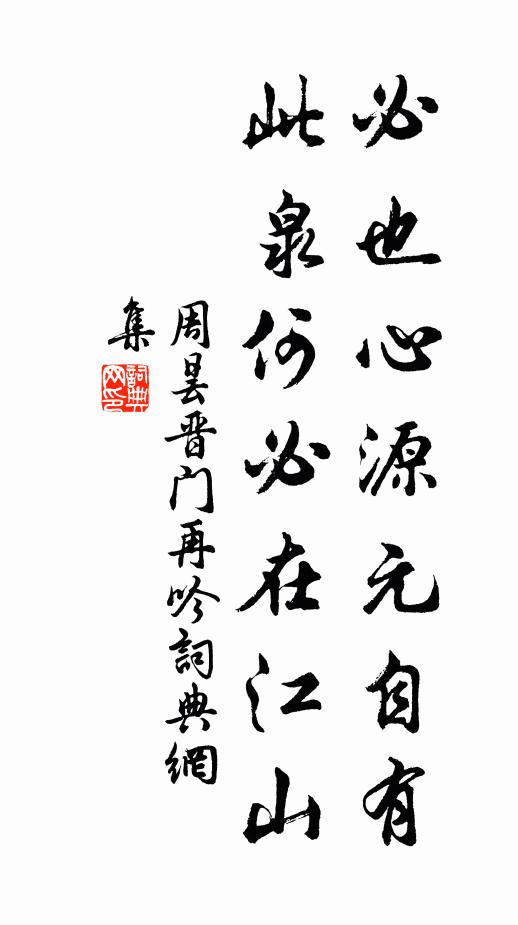 必也心源元自有
此泉何必在江山
周昙晋门再吟詞典網
集
詞典
网印